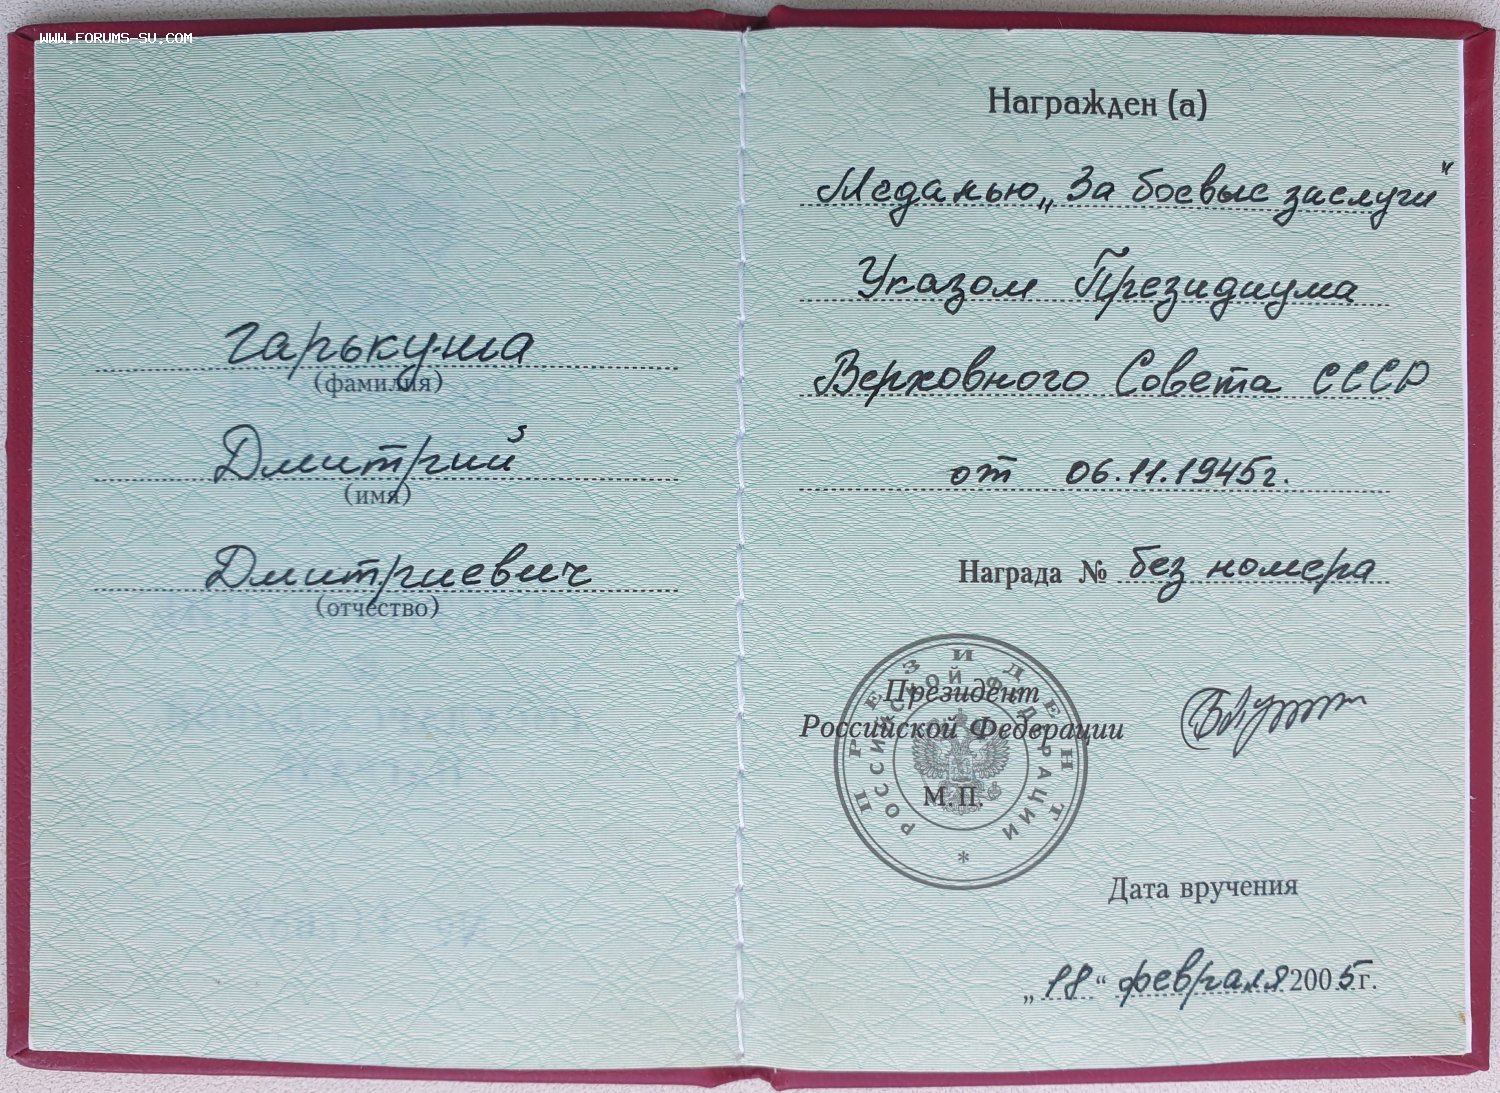 WWW.FORUMS-SU.COM
Гарькуша
(фамилия)
Дмитрий
(имя)
Дмитриевич
(отчество)
Награжден (а)
Медалью „За боевые заслуги“
Указом Президиума
Верховного Совета СССР
от 06.11.1945г.
Награда № без номера
Президент
Российской Федерации
М.П.
ПРЕЗИДЕНТ
РОССИЙСКОЙ ФЕДЕРАЦИИ
*
Дата вручения
„18“ февраля 2005г.